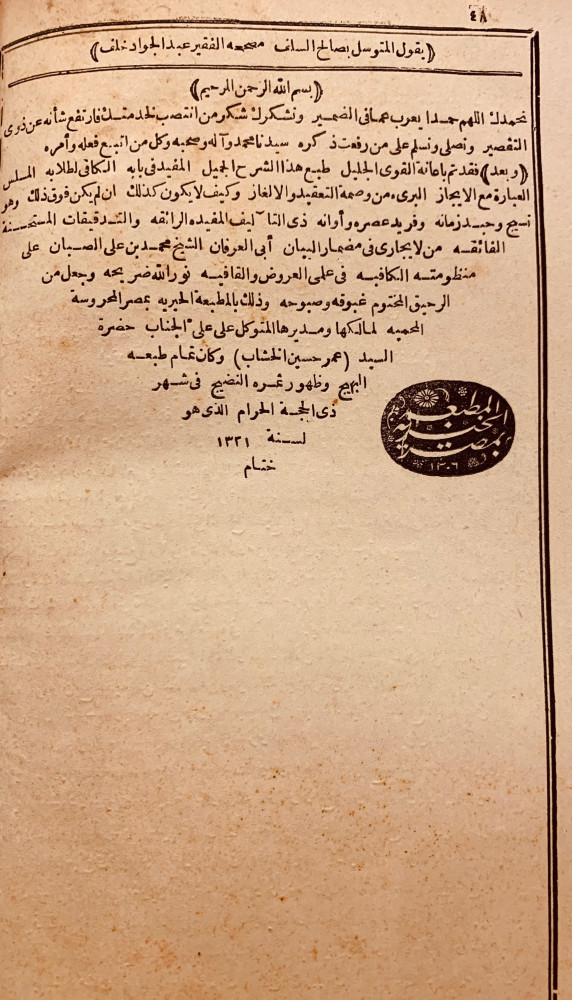 ٤٨
﴿يقول المتوسل بصالح السلف مصححه الفقير عبد الجواد خلف﴾
﴿بسم الله الرحمن الرحيم﴾
نحمدك اللهم حمدا يعرب عما في الضمير ونشكرك شكر من انتصب لخدمتك فارتفع شأنه عن ذوى
التقصير ونصلى ونسلم على من رفعت ذكره سيدنا محمد وآله وصحبه وكل من اتبع فعله وأمره
﴿وبعد﴾ فقد تم باعانة القوى الجليل طبع هذا الشرح الجميل المفيد في بابه الكافى لطلابه السلس
العبارة مع الايجاز البرىء من وصمة التعقيد والالغاز وكيف لا يكون كذلك ان لم يكن فوق ذلك وهو
نسيج وحيد زمانه وفريد عصره وأوانه ذى التآليف المفيده الرائقه والتدقيقات المستحسنة
الفائقه من لا يجارى فى مضمار البيان أبى العرفان الشيخ محمد بن على الصبان على
منظومته الكافيه فى علمى العروض والقافيه نور الله ضريحه وجعل من
الرحيق المختوم غبوقه وصبوحه وذلك بالمطبعة الخيريه بمصر المحروسة
المحميه لمالكها ومديرها المتوكل على على الجناب حضرة
السيد (عمر حسين الخشاب) وكان تمام طبعه
البهيج وظهور ثمره النضيج فى شهر
ذى الحجة الحرام الذى هو
لسنة ١٣٢١
ختام
المطبعة
الخيرية
بمصر
١٣٠٦